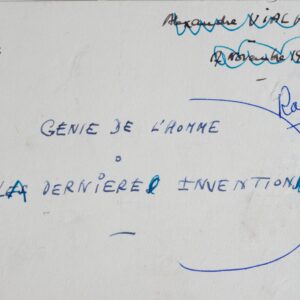 Alexandre VIAL
Novembre 19
Ro
GENIE DE L'HOMME
LA DERNIERE INVENTION